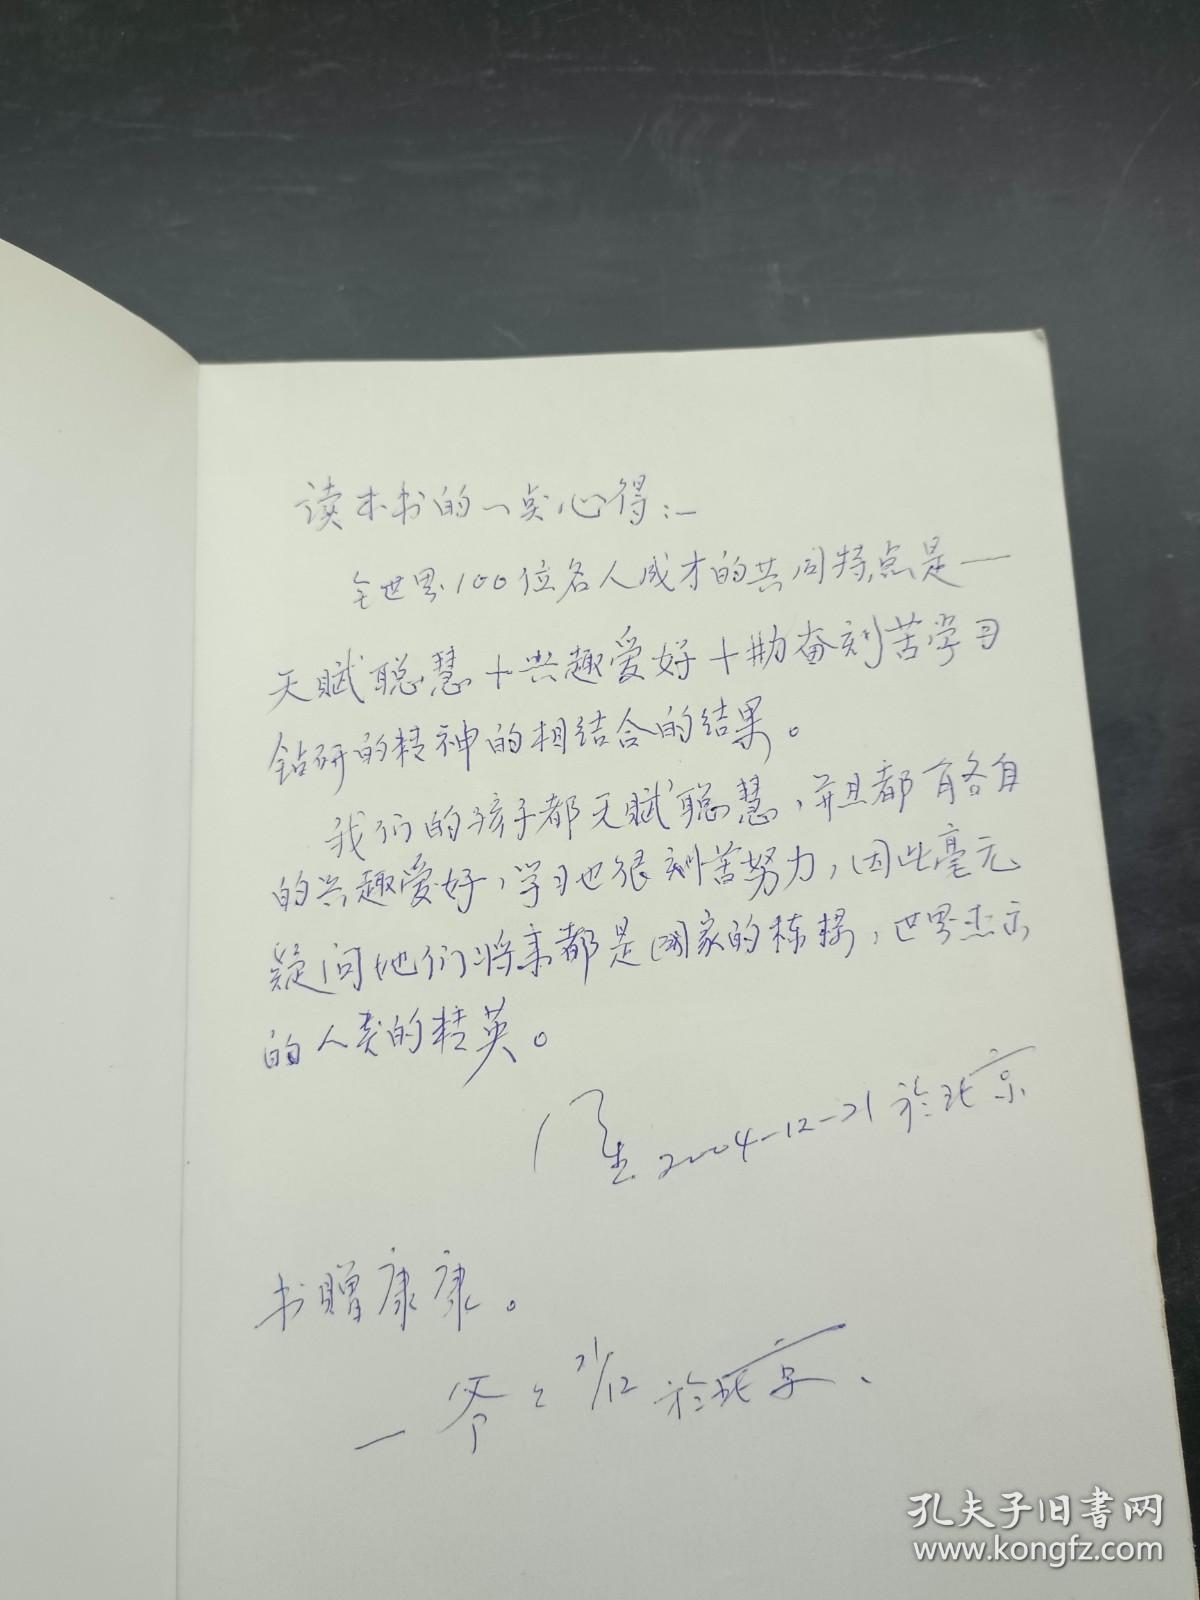 读本书的一点心得：—
全世界100位名人成才的共同特点是—
天赋聪慧+兴趣爱好+勤奋刻苦学习
钻研的精神的相结合的结果。
我们的孩子都天赋聪慧，并且都有各自
的兴趣爱好，学习也很刻苦努力，因此毫无
疑问他们将来都是国家的栋梁，世界杰出
的人类的精英。
2004-12-21 於北京
书赠康康。
—爷爷 21/12 於北京、
孔夫子旧书网
www.kongfz.com